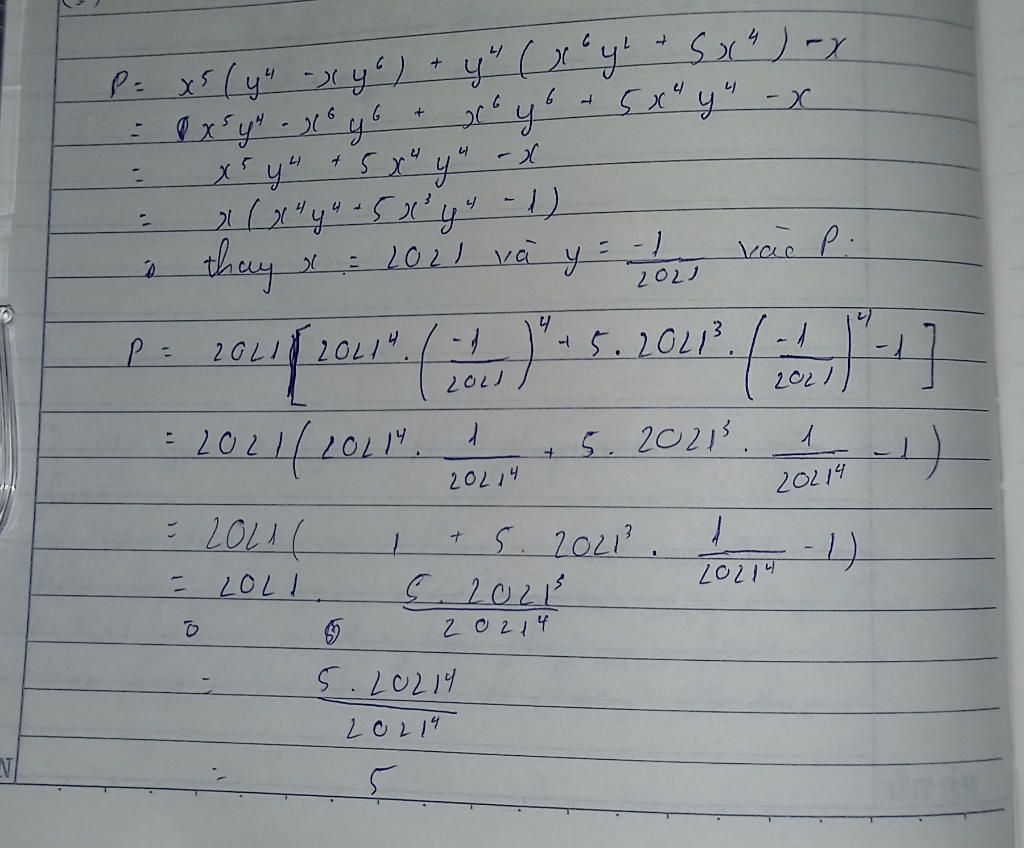 P = x⁵(y⁴ - xy⁶) + y⁴(x⁶y² + 5x⁴) - x
= x⁵y⁴ - x⁶y⁶ + x⁶y⁶ + 5x⁴y⁴ - x
= x⁵y⁴ + 5x⁴y⁴ - x
= x(x⁴y⁴ + 5x³y⁴ - 1)
thay x = 2021 và y = -1/2021 vào P:
P = 2021[2021⁴.(-1/2021)⁴ + 5.2021³.(-1/2021)⁴ - 1]
= 2021(2021⁴.1/2021⁴ + 5.2021³.1/2021⁴ - 1)
= 2021(1 + 5.2021³.1/2021⁴ - 1)
= 2021.5.2021³/2021⁴
= 5.2021⁴/2021⁴
= 5